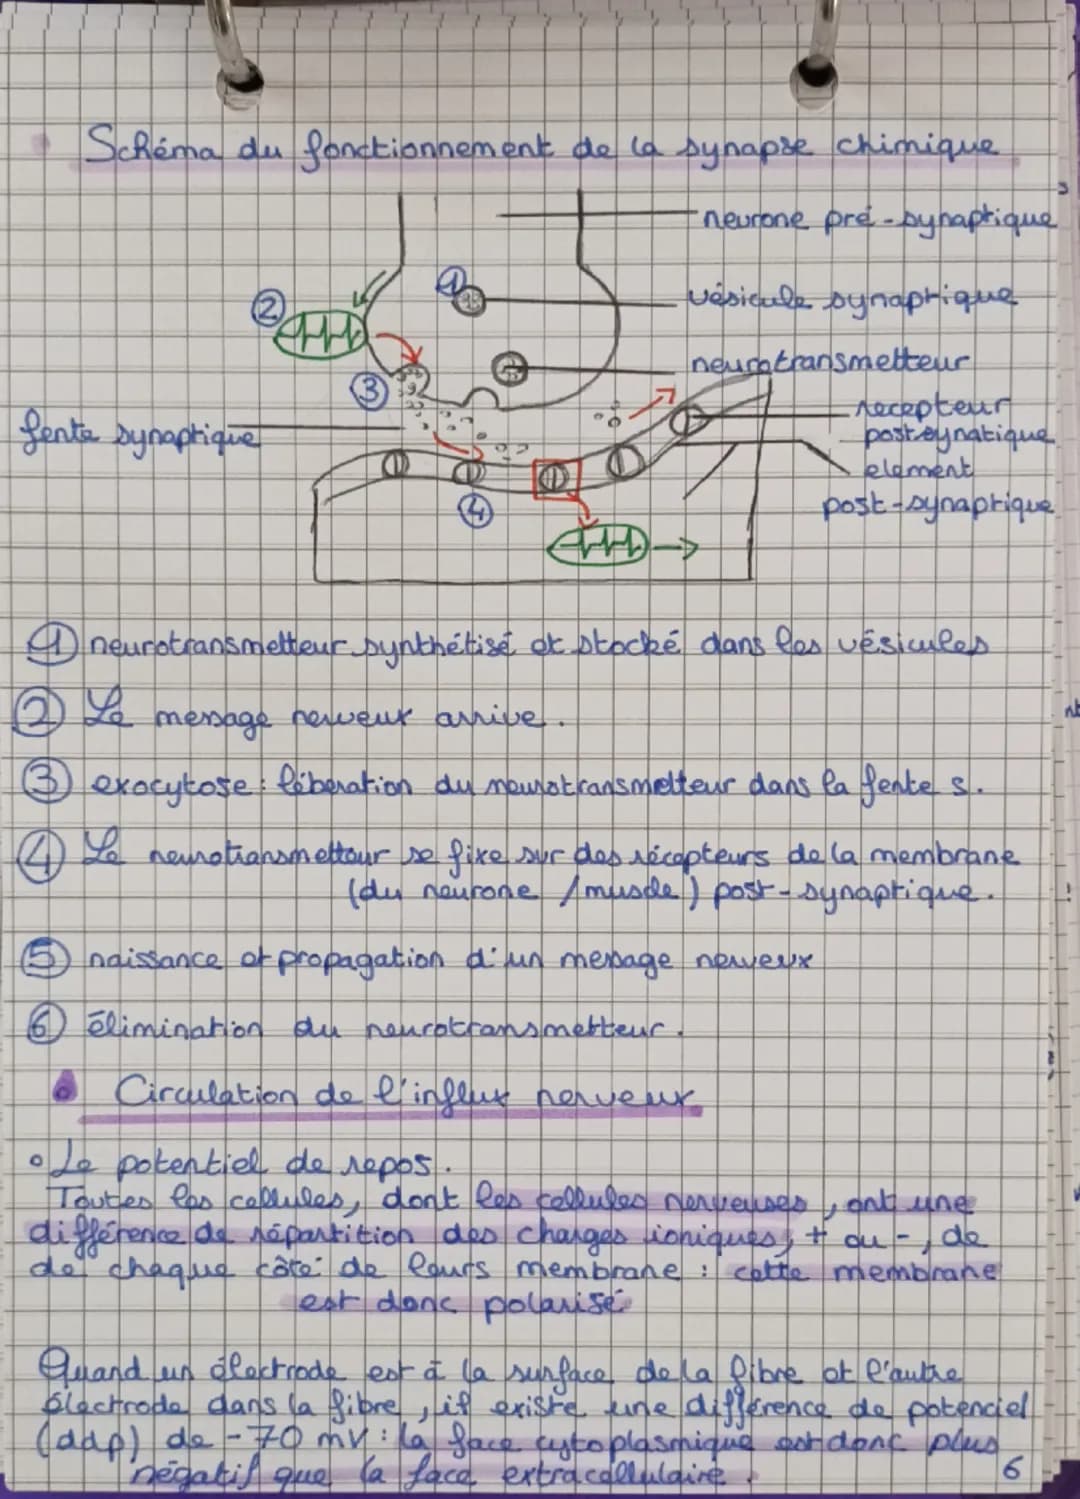 Schéma du fonctionnement de la synapse chimique
neurone pré-synaptique
1
vésicule synaptique
2
neurotransmetteur
3
recepteur
fente synaptique
postsynatique
element
4
post-synaptique
1 neurotransmetteur synthétisé et stocké dans les vésicules
2 Le message nerveux arrive.
3 exocytose : libération du neurotransmetteur dans la fente s.
4 Le neurotransmetteur se fixe sur des récepteurs de la membrane
(du neurone / muscle) post-synaptique.
5 naissance et propagation d'un message nerveux
6 élimination du neurotransmetteur.
Circulation de l'influx nerveux
Le potentiel de repos.
Toutes les cellules, dont les cellules nerveuses, ont une
différence de répartition des charges ioniques, + ou -, de
de chaque côté de leurs membrane : cette membrane
est donc polarisé
Quand un électrode est à la surface de la fibre et l'autre
électrode dans la fibre, il existe une différence de potenciel
(ddp) de -70 mV : la face cytoplasmique est donc plus
négatif que la face extracellulaire.
6